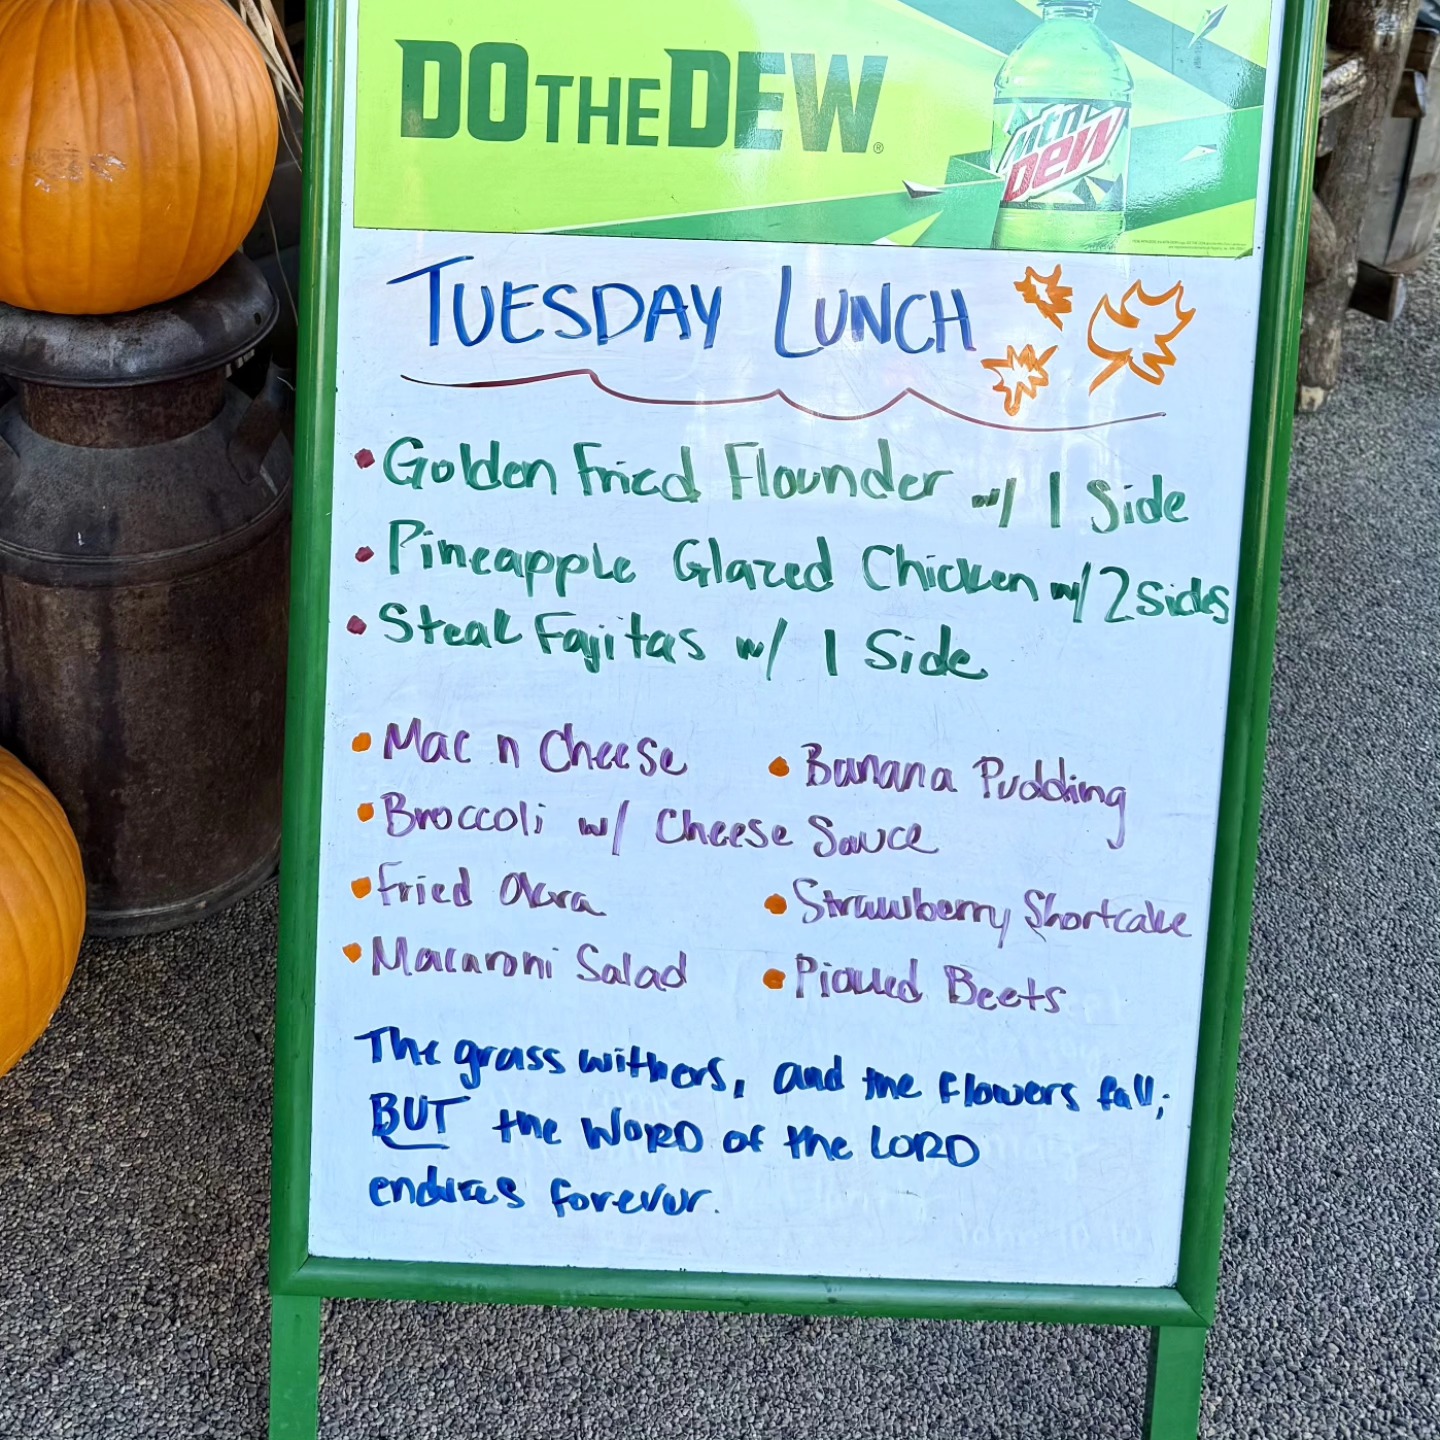 DO THE DEW®
mtn DEW
TUESDAY LUNCH
• Golden Fried Flounder w/ 1 Side
• Pineapple Glazed Chicken w/ 2 sides
• Steak Fajitas w/ 1 Side
• Mac n Cheese
• Banana Pudding
• Broccoli w/ Cheese Sauce
• Fried Okra
• Strawberry Shortcake
• Macaroni Salad
• Pickled Beets
The grass withers, and the flowers fall;
BUT the WORD of the LORD
endures forever.